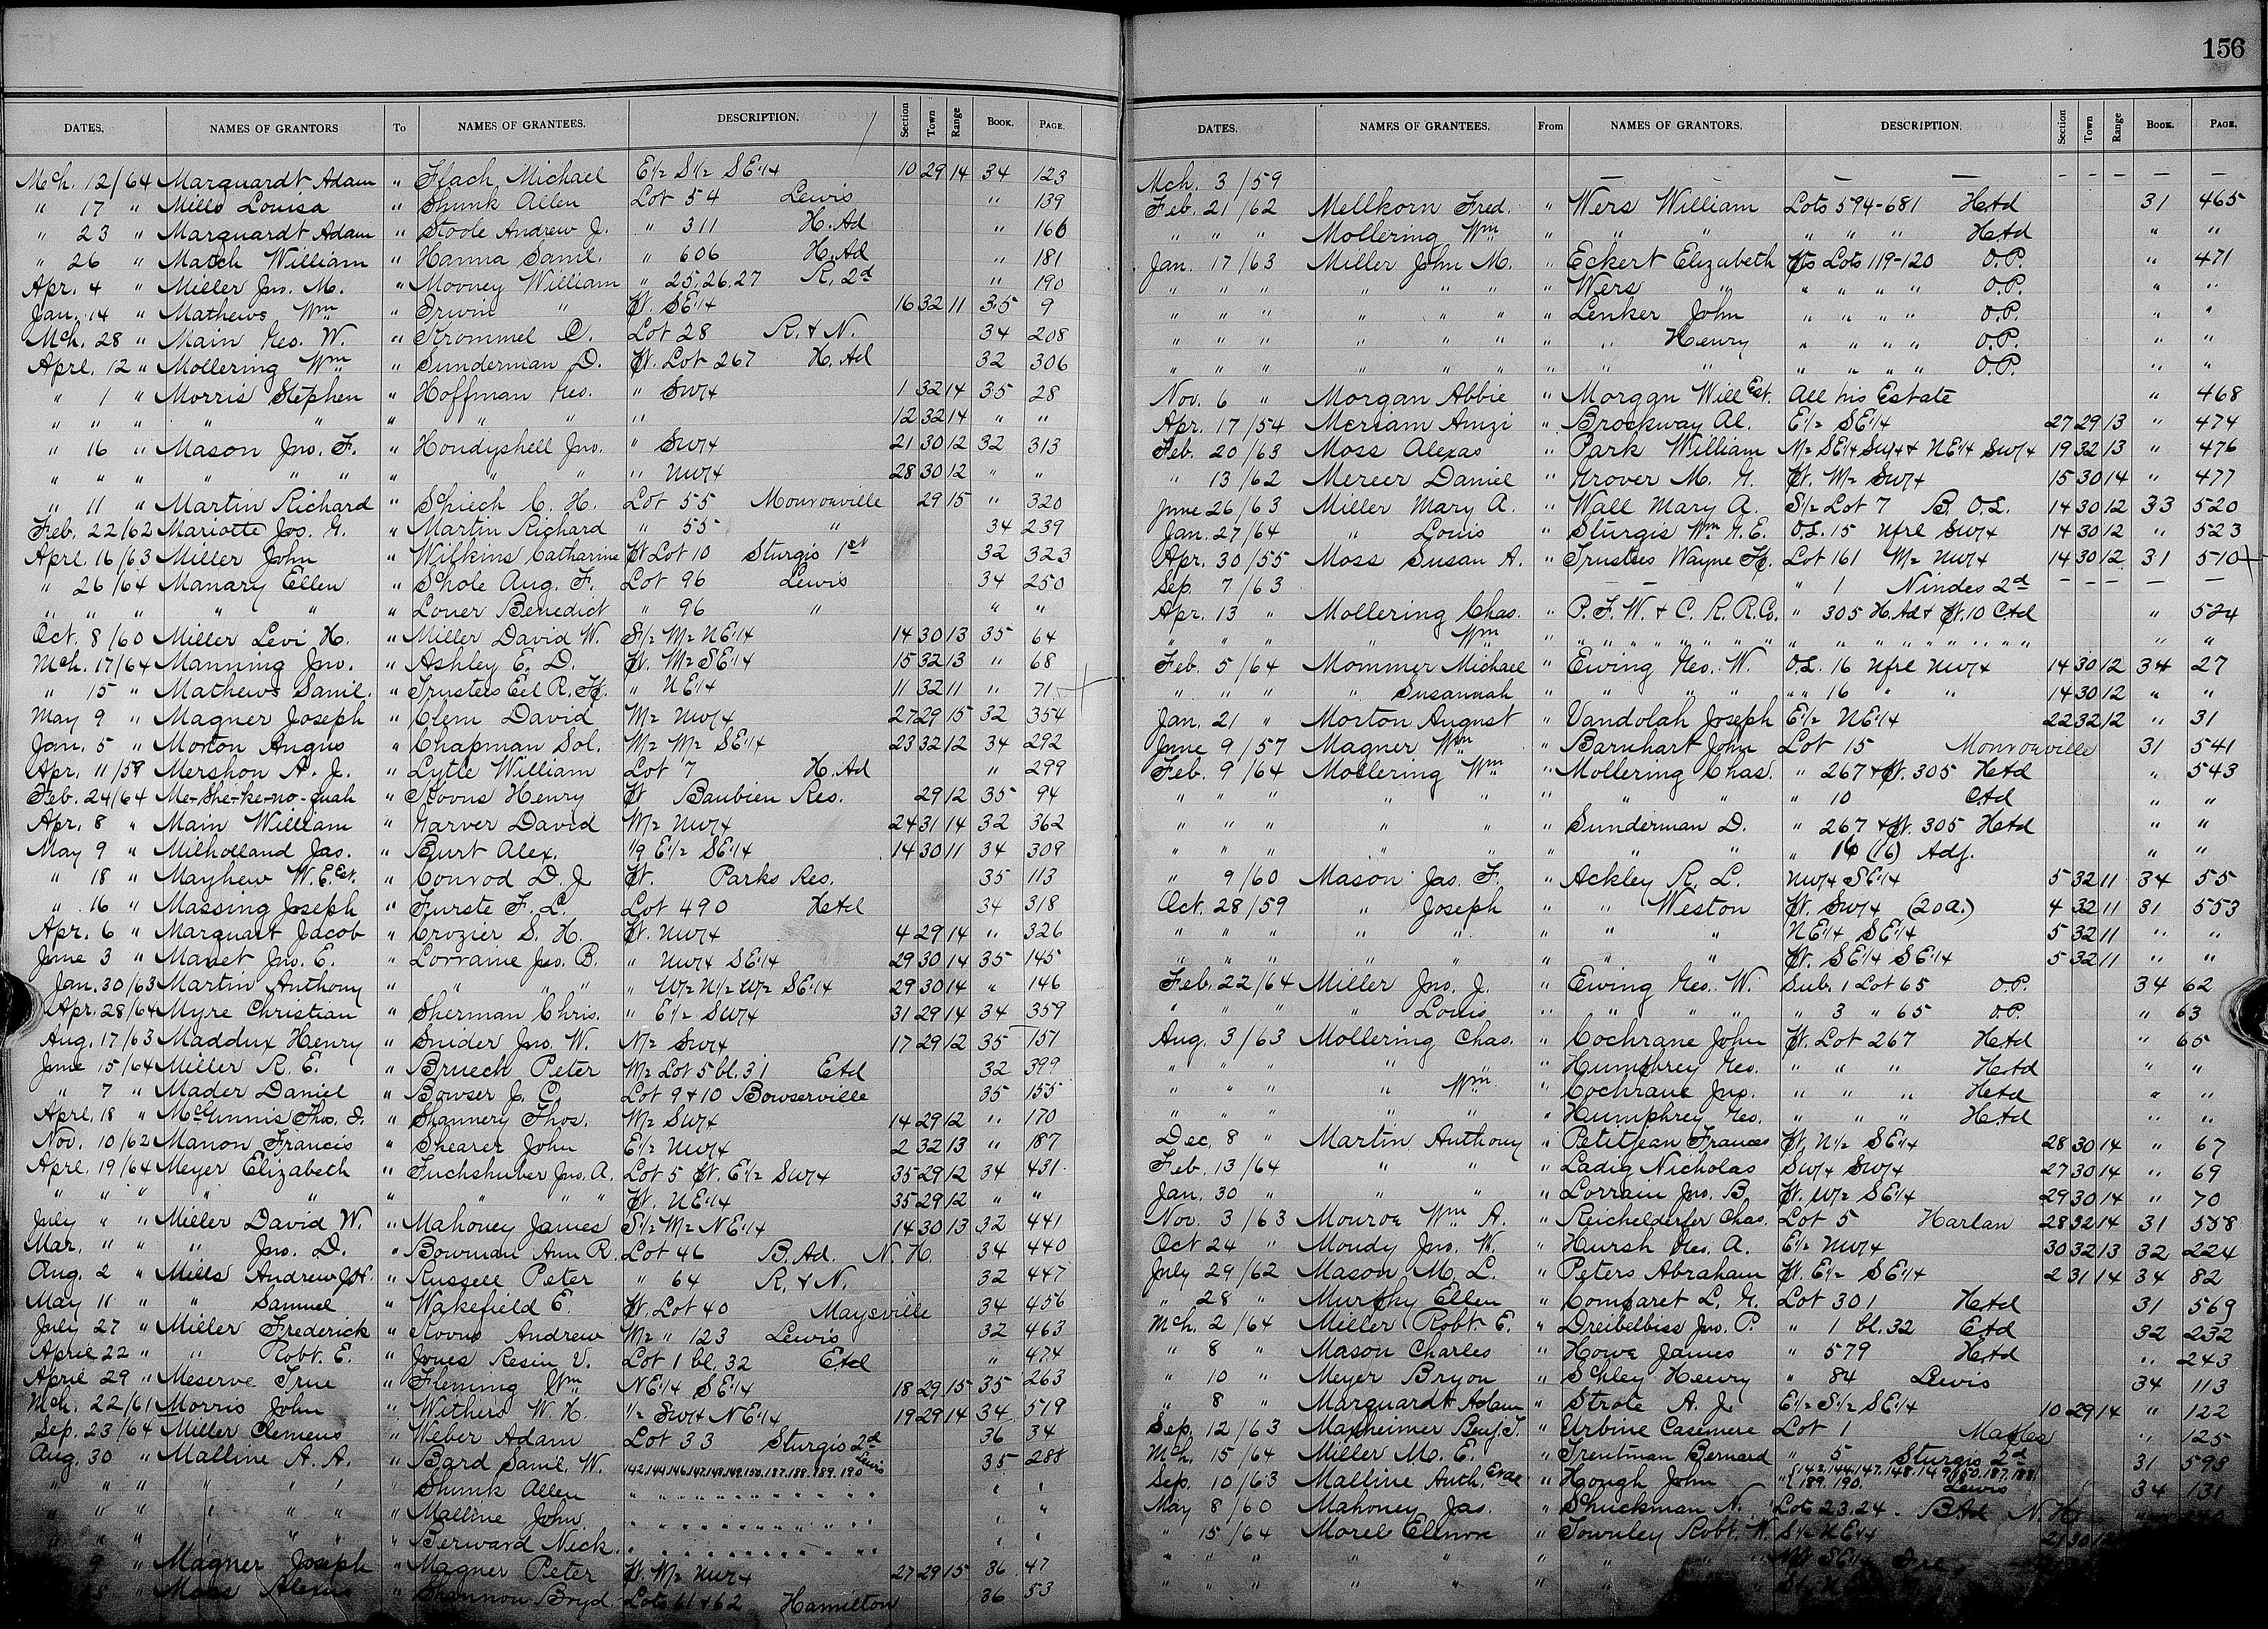 156
DATES. NAMES OF GRANTORS To NAMES OF GRANTEES. DESCRIPTION. Section Town Range BOOK. PAGE.
Mch. 12/64 Marquardt Adam " Flach Michael E1/2 S1/2 SE1/4 10 29 14 34 123
" 17 " Mills Louisa " Shunk Allen Lot 54 Lewis " 139
" 23 " Marquardt Adam " Stoole Andrew J. " 311 H. Ad " 166
" 26 " Match William " Hanna Saml. " 606 H. Ad " 181
Apr. 4 " Miller Jno. M. " Mooney William " 25,26,27 R. 2d " 190
Jan. 14 " Mathews Wm " Irwin " Pt. SE1/4 16 32 11 35 9
Mch. 28 " Main Geo. W. " Krommel C. Lot 28 R. & N. 34 208
Aprl. 12 " Mollering Wm " Sunderman D. Pt. Lot 267 H. Ad 32 306
" 1 " Morris Stephen " Hoffman Geo. " SW1/4 1 32 14 35 28
" " " " " " " " " 12 32 14 " "
" 16 " Mason Jno. F. " Houdyshell Jno. " SW1/4 21 30 12 32 313
" " " " " " " " " " NW1/4 28 30 12 " "
" 11 " Martin Richard " Schiech C. H. Lot 55 Monroeville 29 15 " 320
Feb. 22/62 Mariotte Jos. G. " Martin Richard " 55 " 34 239
April. 16/63 Miller John " Wilkins Catharine Pt Lot 10 Sturgis 1st 32 323
" 26/64 Manary Ellen " Schole Aug. F. Lot 96 Lewis 34 250
" " " " " " Louer Benedict " 96 " " "
Oct. 8/60 Miller Levi H. " Miller David W. S1/2 W1/2 NE1/4 14 30 13 35 64
Mch. 17/64 Manning Jno. " Ashley E. D. Pt. W1/2 SE1/4 15 32 13 " 68
" 15 " Mathews Saml. " Trustees Eel R. Tp. " NE1/4 11 32 11 " 71
May 9 " Magner Joseph " Clem David W1/2 NW1/4 27 29 15 32 354
Jan. 5 " Morton Angus " Chapman Sol. W1/2 W1/2 SE1/4 23 32 12 34 292
Apr. 11/59 Mershon A. J. " Lytle William Lot 7 H. Ad " 299
Feb. 24/64 Me-she-ke-no-quah " Koons Henry Pt Baubien Res. 29 12 35 94
Apr. 8 " Main William " Garver David W1/2 NW1/4 24 31 14 32 362
May 9 " Milholland Jas. " Burt Alex. 1/9 E1/2 SE1/4 14 30 11 34 309
" 18 " Mayhew W. E. Est. " Conrod D. J Pt. Parks Res. 35 113
" 16 " Massing Joseph " Furste F. L. Lot 490 HAd 34 318
Apr. 6 " Marquart Jacob " Crozier S. H. Pt. NW1/4 4 29 14 " 326
June 3 " Manet Jno. E. " Lorraine Jno. B. " NW1/4 SE1/4 29 30 14 35 145
Jan. 30/63 Martin Anthony " " " " " W1/2 N1/2 W1/2 SE1/4 29 30 14 " 146
Apr. 28/64 Myre Christian " Sherman Chris. " E1/2 SW1/4 31 29 14 34 359
Aug. 17/63 Maddux Henry " Snider Jno. W. N1/2 SW1/4 17 29 12 35 151
June 15/64 Miller R. E. " Bruech Peter W1/2 Lot 5 bl. 31 EAd 32 399
" 7 " Mader Daniel " Bowser J. C. Lot 9 & 10 Bowserville 35 155
Aprl. 18 " McGinnis Thos. J. " Shannery Thos. W1/2 SW1/4 14 29 12 " 170
Nov. 10/62 Manon Francis " Shearer John E1/2 NW1/4 2 32 13 " 187
Aprl. 19/64 Meyer Elizabeth " Fuchshuber Jno. A. Lot 5 Pt. E1/2 SW1/4 35 29 12 34 431
" " " " " " " " " Pt. NE1/4 35 29 12 " "
July " " Miller David W. " Mahoney James S1/2 W1/2 NE1/4 14 30 13 32 441
Mar. " " " Jno. D. " Bowman Ann R. Lot 46 B. Ad. N. H. 34 440
Aug. 2 " Mills Andrew J. " Russell Peter " 64 R. & N. 32 447
May 11 " " Samuel " Wakefield E. Pt. Lot 40 Maysville 34 456
July 27 " Miller Frederick " Koons Andrew W1/2 " 123 Lewis 32 463
April 22 " " Robt. E. " Jones Resin V. Lot 1 bl. 32 EAd " 474
April 29 " Meserve True " Fleming Wm NE1/4 SE1/4 18 29 15 35 263
Mch. 22/61 Morris John " Withers W. H. 1/2 SW1/4 NE1/4 19 29 14 34 519
Sep. 23/64 Miller Clemens " Weber Adam Lot 33 Sturgis 2d 36 34
Aug. 30 " Malline A. A. " Bard Saml. W. 142.144.146.147.148.149.150.187.188.189.190 Lewis 35 288
" " " " " " " Shunk Allen " " "
" " " " " " " Malline John " " "
" " " " " " " Berward Nick. " " "
" 9 " Magner Joseph " Magner Peter Pt. W1/2 NW1/4 27 29 15 36 47
" Alexis " Shannon Boyd Lots 61 & 62 Hamilton 36 53
DATES. NAMES OF GRANTEES. From NAMES OF GRANTORS. DESCRIPTION. Section Town Range BOOK. PAGE.
Mch. 3/59 — — — — — — — —
Feb. 21/62 Mellkorn Fred. " Wers William Lots 594-681 HAd 31 465
" " " Mollering Wm " " " " " " HAd " "
Jan. 17/63 Miller John M. " Eckert Elizabeth Pts Lots 119-120 O.P. " 471
" " " " " " " Wers " " " " " O.P. " "
" " " " " " " Lenker John " " " " O.P. " "
" " " " " " " " Henry " " " " O.P. " "
" " " " " " " " " " " " " O.P. " "
Nov. 6 " Morgan Abbie " Morgan Will Est. All his Estate " 468
Apr. 17/54 Meriam Amzi " Brockway Al. E1/2 SE1/4 27 29 13 " 474
Feb. 20/63 Moss Alexas " Park William W1/2 SE1/4 SW1/4 & NE1/4 SW1/4 19 32 13 " 476
" 13/62 Mercer Daniel " Grover M. G. Pt. W1/2 SW1/4 15 30 14 " 477
June 26/63 Miller Mary A. " Wall Mary A. S1/2 Lot 7 B. O.L. 14 30 12 33 520
Jan. 27/64 " Louis " Sturgis Wm G. E. O.L. 15 Nfrl SW1/4 14 30 12 " 523
Apr. 30/55 Moss Susan A. " Trustees Wayne Tp. Lot 161 W1/2 NW1/4 14 30 12 31 510
Sep. 7/63 — — " 1 Nindes 2d — — — — —
Apr. 13 " Mollering Chas. " P. F. W. & C. R. R. Co. " 305 H. Ad & Pt. 10 CAd " 524
" " " " Wm " " " " " " " " " " " " "
Feb. 5/64 Mommer Michael " Ewing Geo. W. O.L. 16 Nfrl NW1/4 14 30 12 34 27
" " " " Susannah " " " " " " 16 " " 14 30 12 " "
Jan. 21 " Morton August " Vandolah Joseph E1/2 NE1/4 22 32 12 " 31
June 9/57 Magner Wm " Barnhart John Lot 15 Monroeville 31 541
Feb. 9/64 Mollering Wm " Mollering Chas. " 267 & Pt. 305 HAd " 543
" " " " " " " " " 10 CAd " "
" " " " " " Sunderman D. " 267 & Pt. 305 HAd " "
" " " " " " " " " 16 (16) Adj. " "
" 9/60 Mason Jas. F. " Ackley R. L. NW1/4 SE1/4 5 32 11 34 55
Oct. 28/59 " Joseph " " Weston Pt. SW1/4 (20 a.) 4 32 11 31 553
" " " " " " " " NE1/4 SE1/4 5 32 11 " "
" " " " " " " " Pt. SE1/4 SE1/4 5 32 11 " "
Feb. 22/64 Miller Jno. J. " Ewing Geo. W. Sub. 1 Lot 65 O.P. 34 62
" " " " Louis " " " " " 3 " 65 O.P. " 63
Aug. 3/63 Mollering Chas. " Cochrane John Pt. Lot 267 HAd " 65
" " " " " " Humphrey Geo. " " " HAd " "
" " " " Wm " Cochrane Jno. " " " HAd " "
" " " " " " Humphrey Geo. " " " HAd " "
Dec. 8 " Martin Anthony " Petitjean Frances Pt. N1/2 SE1/4 28 30 14 " 67
Feb. 13/64 " " " Ladig Nicholas SW1/4 SW1/4 27 30 14 " 69
Jan. 30 " " " " Lorrain Jno. B. Pt. W1/2 SE1/4 29 30 14 " 70
Nov. 3/63 Monroe Wm A. " Reichelderfer Chas. Lot 5 Harlan 28 32 14 31 558
Oct 24 " Moudy Jno. W. " Hursh Geo. A. E1/2 NW1/4 30 32 13 32 224
July 29/62 Mason M. L. " Peters Abraham Pt. E1/2 SE1/4 2 31 14 34 82
" 28 " Murphy Ellen " Comparet L. G. Lot 301 HAd 31 569
Mch. 2/64 Miller Robt. E. " Dreibelbiss Jno. P. " 1 bl. 32 EAd 32 232
" 8 " Mason Charles " Howe James " 579 HAd " 243
" 10 " Meyer Bryon " Schley Henry " 84 Lewis 34 113
" 8 " Marquardt Adam " Strote A. J. E1/2 S1/2 SE1/4 10 29 14 " 122
Sep. 12/63 Maxheimer Benj. T. " Urbine Casemere Lot 1 Maples " 125
Mch. 15/64 Miller M. E. " Trentman Bernard " 5 Sturgis 2d 31 593
Sep. 10/63 Malline Anth. " Hough John " 142.144.147.148.149.150.187.188. 189.190. Lewis 34 131
May 8/60 Mahoney Jas. " Shuckman N. Lots 23.24. BAd N. H.
" 15/64 Morels Ellnor " Townley Robt. W. S1/2 NE1/4 21 30